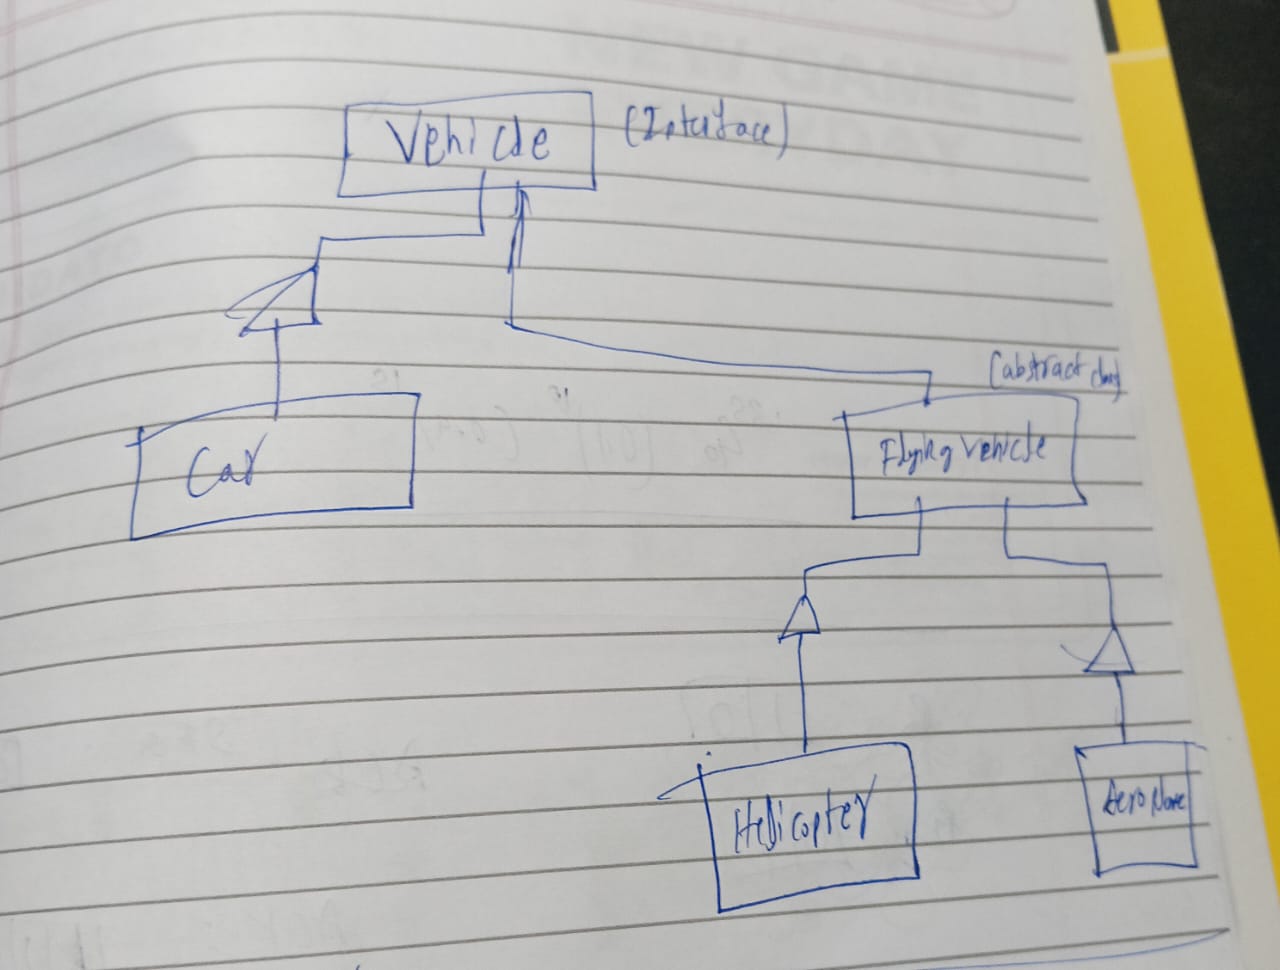 Vehicle (Interface)
(abstract class)
Car
Flying vehicle
Helicopter
Aeroplane